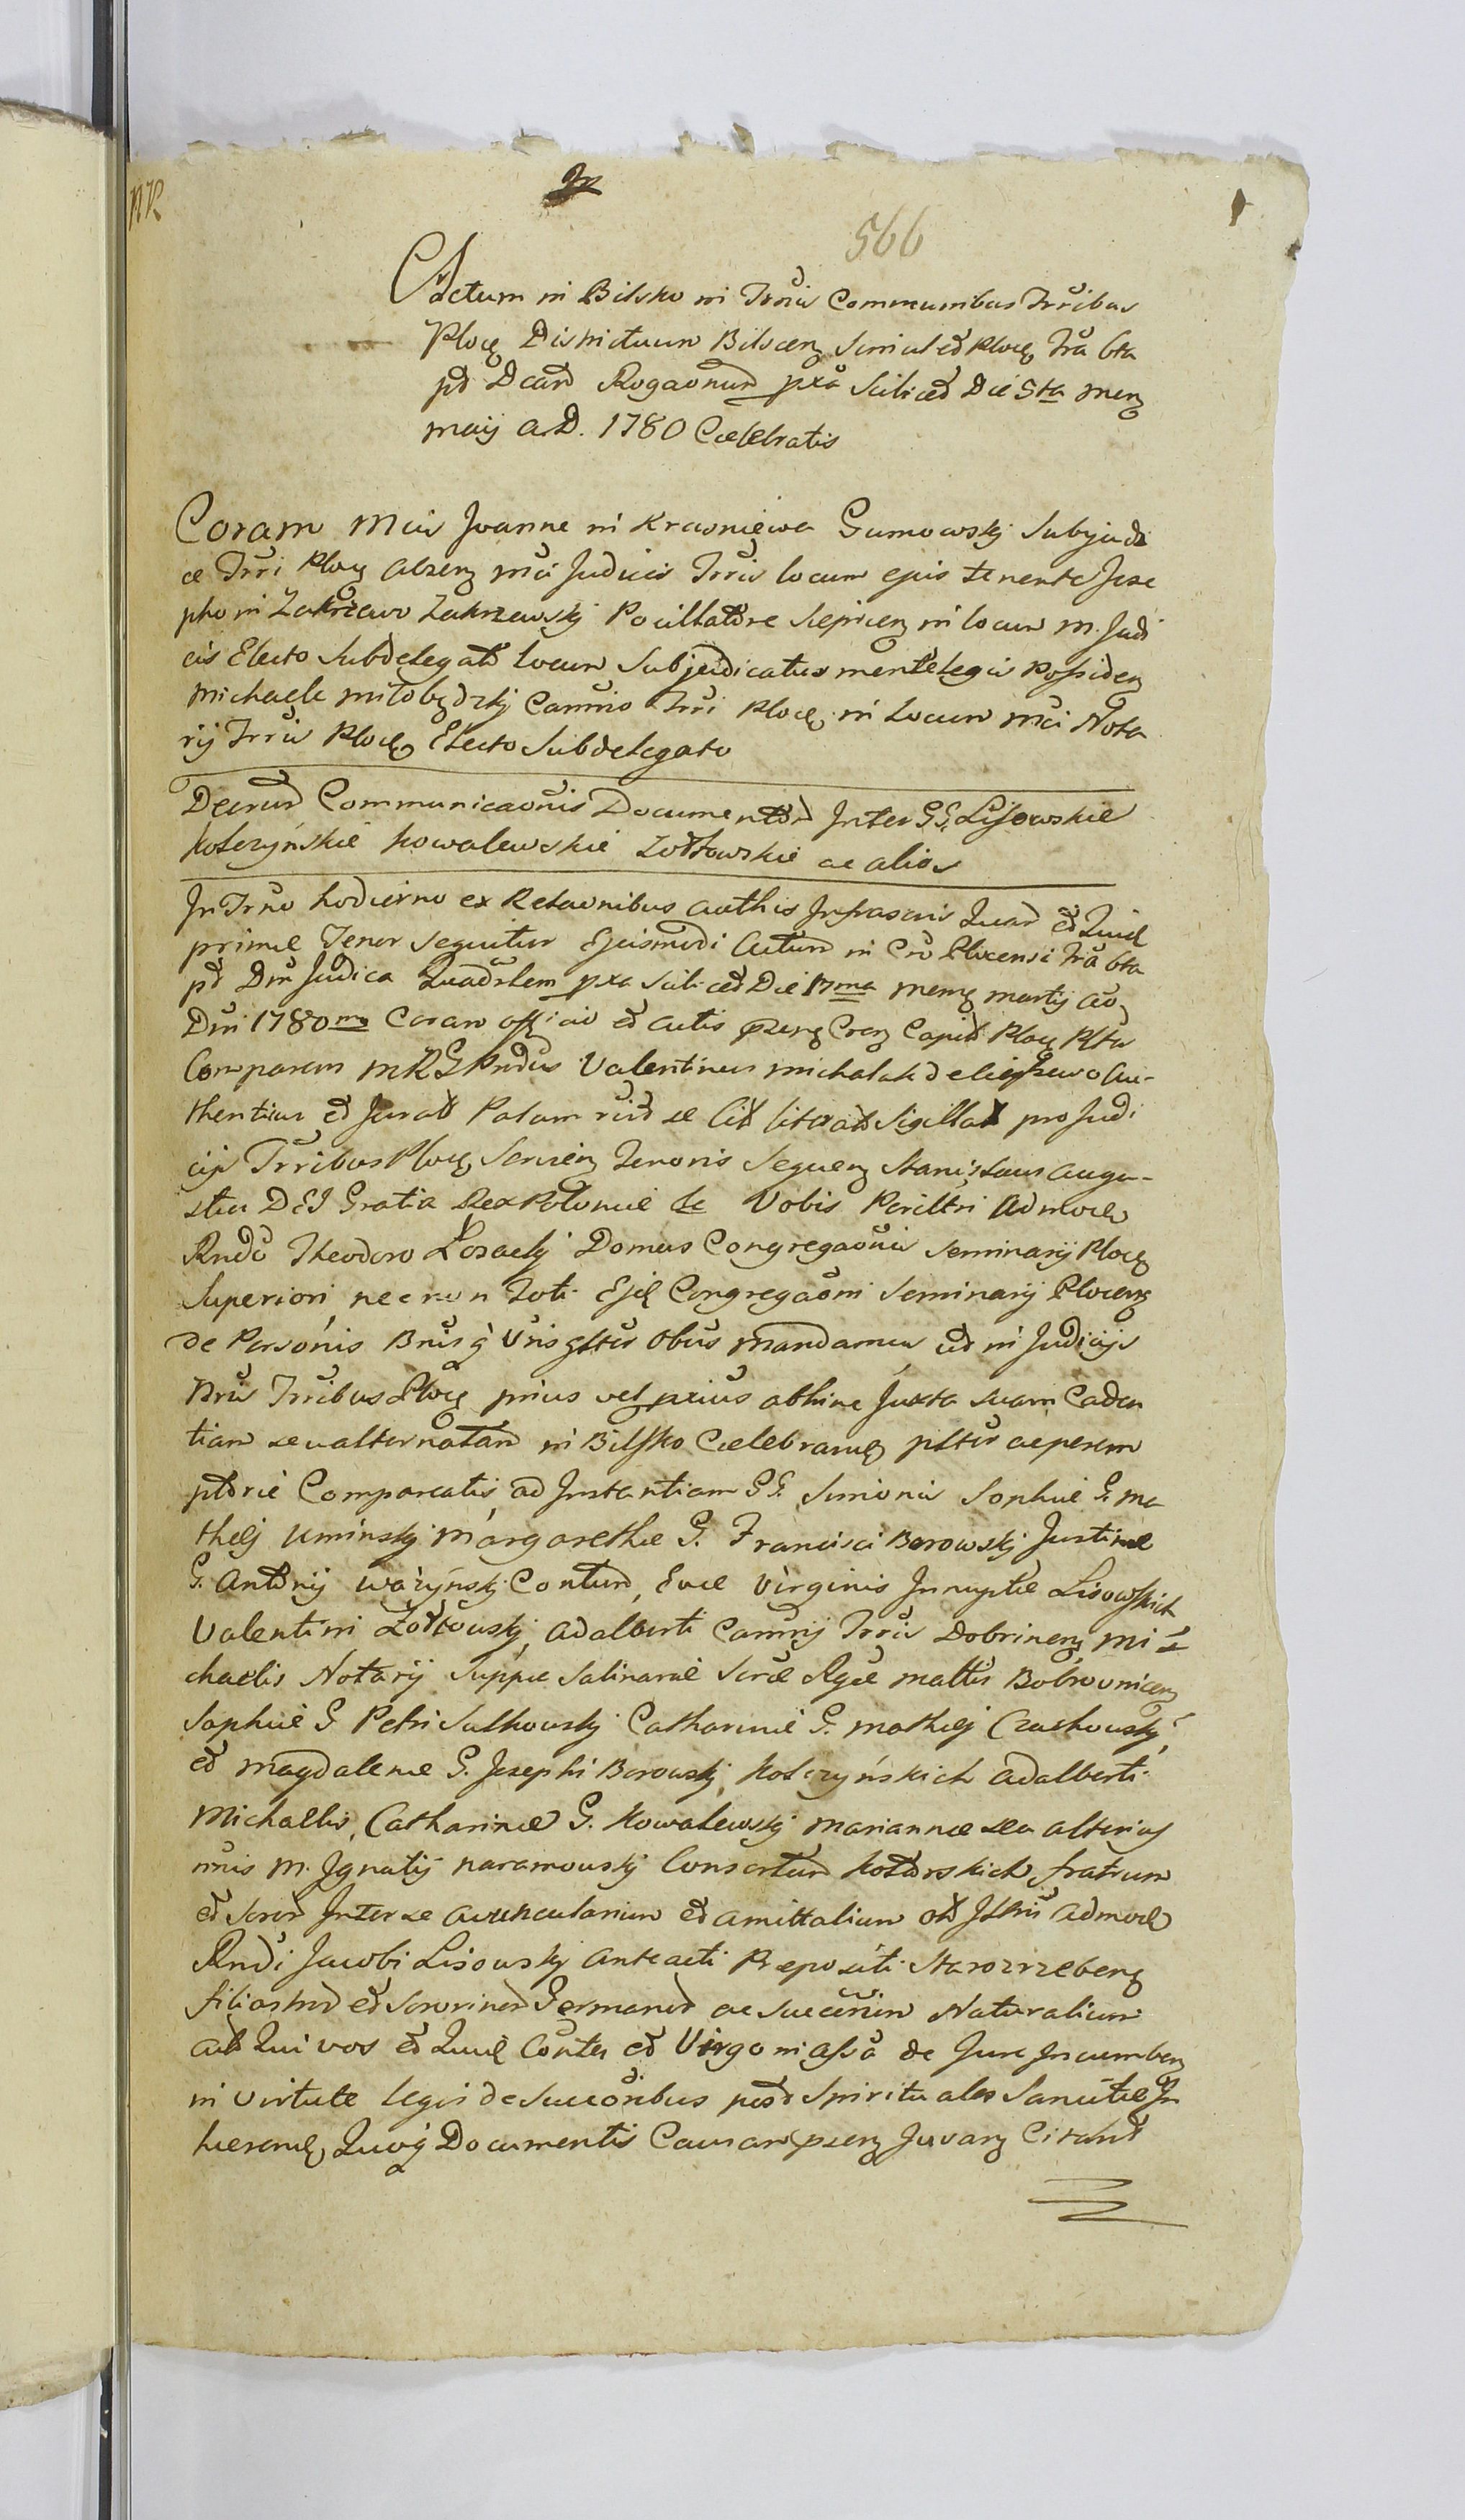 566
Actum in Bilsko in Trnis Communibus Trribus
Ploce Districtuum Bilscen Simul et Ploce Fra 6ta
pt Dcam Rogaonum pxa Scilicet Die 5ta Men
Maij A.D. 1780 Caelebratis
Coram Mcis Joanne in Krasniewa Gumowskj Subjudi
ce Trri Ploce absen Mci Judicis Trris locum ejus tenente Jose
pho in Zakrzewo Zakrzewskj Pocillatore Sieprcen in locum M. Judi
cis Electo Subdelegato locum Subjudicatus mente legis Possiden
Michaele Miłobędzkj Camrio Trri Ploce in Locum Mci Nota
rij Trris Ploce Electo Subdelegato
Decrum Communicaonis Documentor Inter GG. Lisowskie
Kołczyńskie Kowalewskie Zołtowskie ac alios
In Trno hodierno ex Relaonibus Authis Infrascris Quar et Quid
primae Tenor Sequitur Ejusmodi Actum in Cro Plocensi Fra 6ta
pt Dm Judica Quadrlem pxa Scilicet Die 17ma Mens Martij Ao
Dni 1780mo Coram Officio et Actis pzen Cren Capit Ploc Pltr
Comparens MRG Prvdus Valentinus Michalak de Au-
thenticus et Jurat Palam rcit se Cit literat Sigillat pro Judi
cijs Trribus Ploce Servien Tenoris Sequen Stanislaus Augu-
stus DEI Gratia Rex Poloniae &c Vobis Perilltri Admodu
Rndo Theodoro Łozackj Domus Congregaonis Seminarij Ploce
Superiori necnon Toti Ejq Congregaoni Seminarij Plocen
de Personis Bnis q Vris gltr Obus Mandamus ut in Judicijs
Nris Trribus Ploce prius vel pxius abhinc Juxta suam Caden
tiam seu alternatam in Bilsko Caelebranq pltr ac perem
ptorie Compareatis ad Instantiam GG. Simonis Sophiae G. Ma
thej Uminskj Margarethae G. Francisci Borowskj Justinae
G. Antonij Ważyńskj Contum, Evae Virginis Innuptae Lisowskich
Valentini Zołtowskj, Adalberti Camrij Trris Dobrinen Mi
chaelis Notarij Suppae Salinariae Scrae Rgae Mattis Bobrovnicen
Sophiae G Petri Sulkowskj Catharinae G. Mathej Czachowskj,
et Magdalenae G. Josephi Borowskj, Kołczyńskich Adalberti
Michaelis, Catharinae G. Kowalewskj Mariannae sea alterius
nnis M. Ignatij Naramowskj Consortum fratrum
et Soror Inter se avunculanium et amittalium olt Illtris admod
Rndi Jacobi Lisowskj Anteacti Praepositi Starozrzeben
filiastror et Sororinor Germanor ac Succesrum Naturalium
act Qui vos et Quaeq Contes et Virgo in assa de Jure Incumben
in virtute legis de Succoribus post Spirituales Sancitae In
haerenq Quoq Documentis Causam pzen Juvan Citant